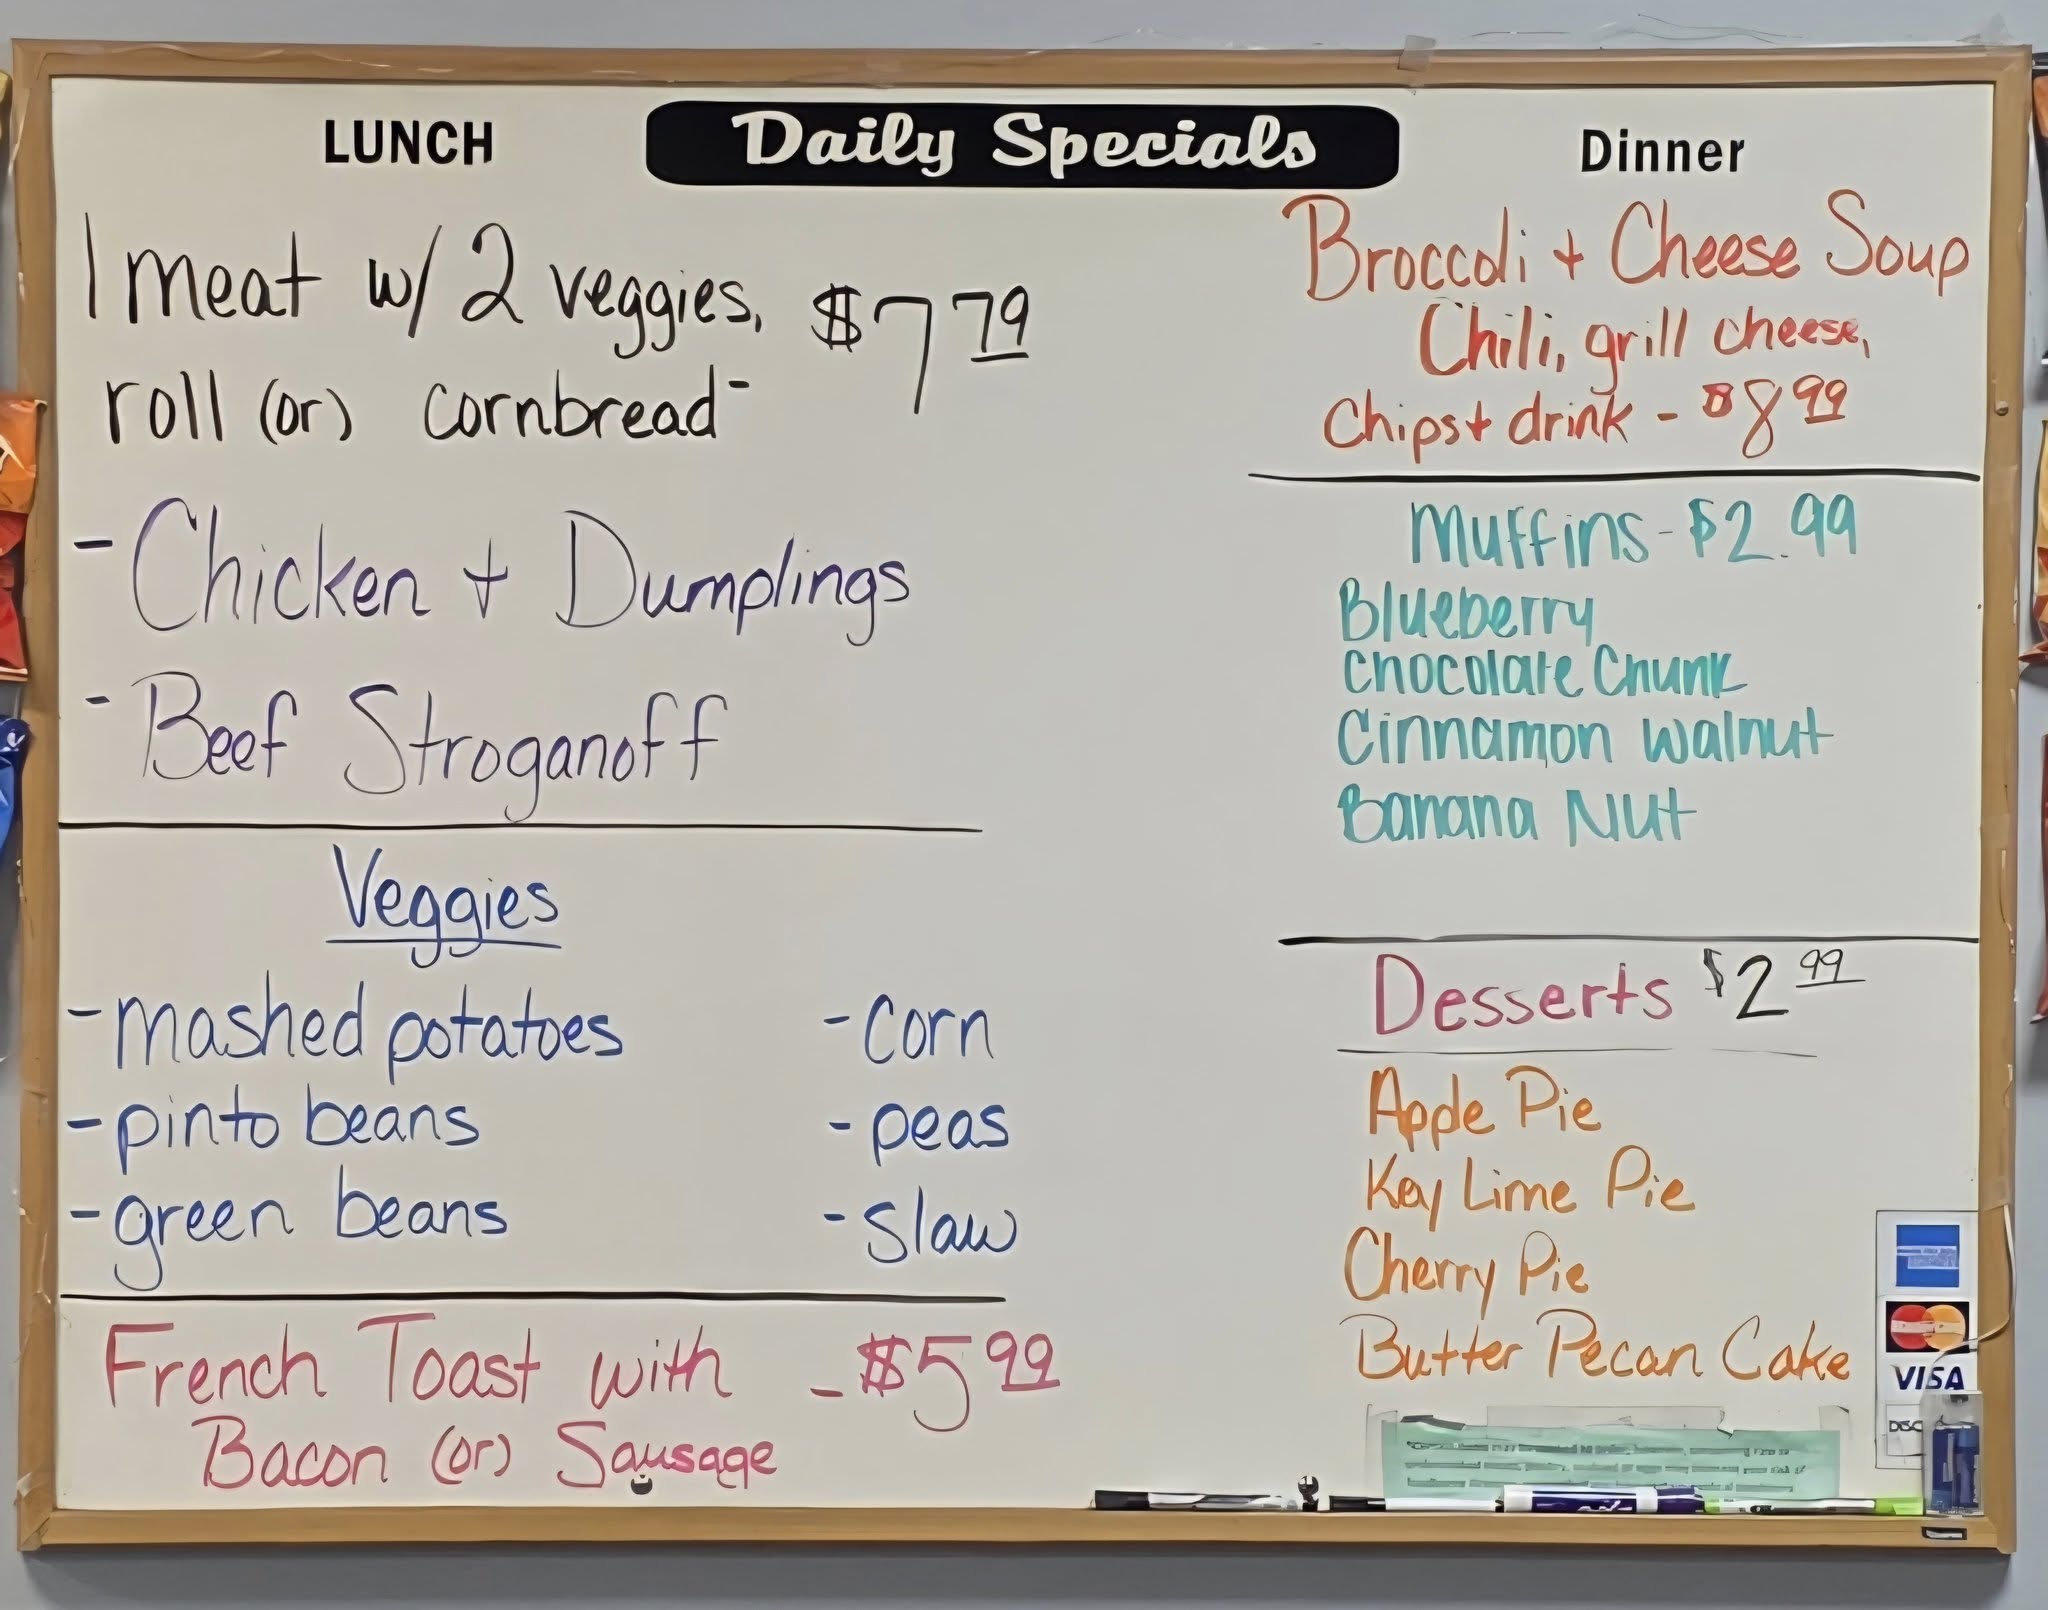 LUNCH
Daily Specials
Dinner
1 meat w/ 2 veggies, $7 79
roll (or) cornbread -
- Chicken + Dumplings
- Beef Stroganoff
Veggies
- mashed potatoes
- pinto beans
- green beans
- corn
- peas
- slaw
French Toast with - $5 99
Bacon (or) Sausage
Broccoli + Cheese Soup
Chili, grill cheese,
Chips + drink - $8 99
Muffins - $2.99
Blueberry
Chocolate Chunk
Cinnamon Walnut
Banana Nut
Desserts $2 99
Apple Pie
Key Lime Pie
Cherry Pie
Butter Pecan Cake
VISA